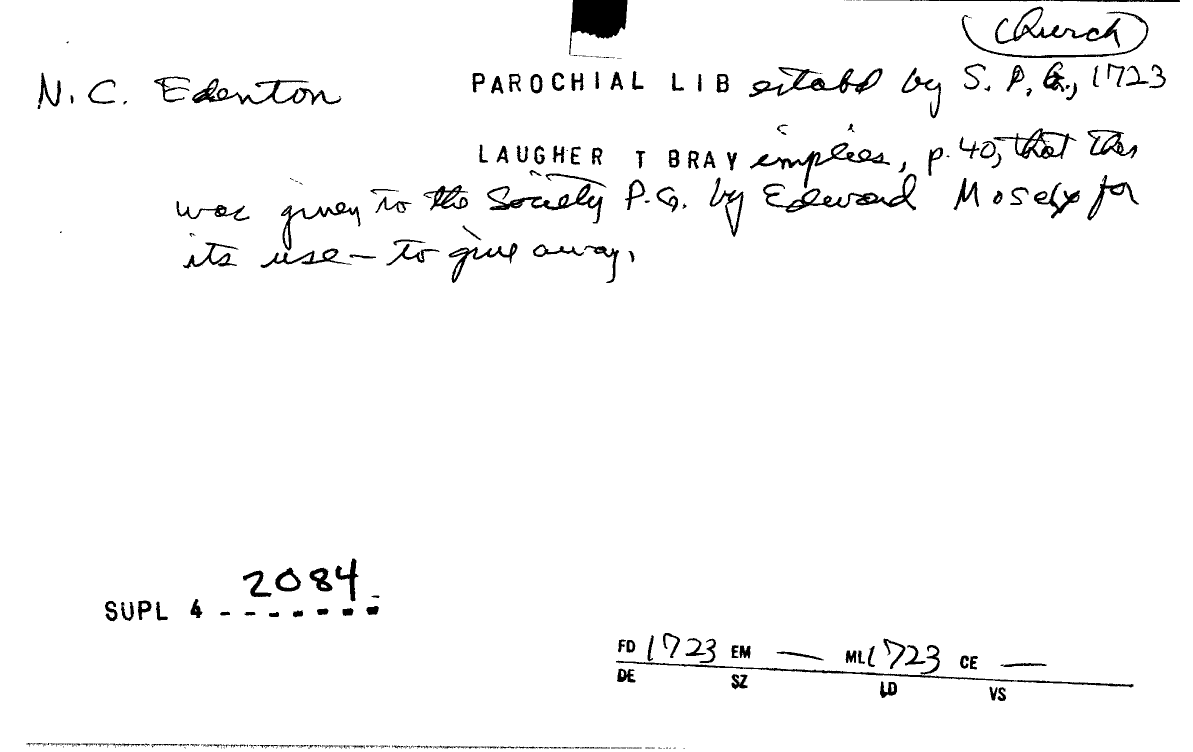 Church
N. C. Edenton PAROCHIAL LIB estabd by S. P. G., 1723
LAUGHER T BRAY implies, p. 40, that this
was given to the Society P. G. by Edward Mosely for
its use — to give away.
2084
SUPL 4 - - - - - - -
FD 1723 EM — ML 1723 CE —
DE SZ LD VS